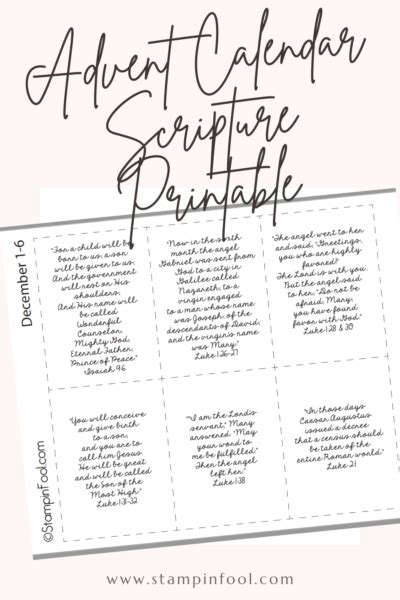 Advent Calendar
Scripture
Printable
December 1-6
"For a child will be
born to us, a son
will be given to us;
And the government
will rest on His
shoulders;
And His name will
be called
Wonderful
Counselor,
Mighty God,
Eternal Father,
Prince of Peace."
Isaiah 9:6
"Now in the sixth
month the angel
Gabriel was sent from
God to a city in
Galilee called
Nazareth, to a
virgin engaged
to a man whose name
was Joseph, of the
descendants of David;
and the virgin's name
was Mary."
Luke 1:26-27
"The angel went to her
and said, "Greetings,
you who are highly
favored!
The Lord is with you.
But the angel said
to her, "Do not be
afraid, Mary;
you have found
favor with God."
Luke 1:28 & 30
"You will conceive
and give birth
to a son,
and you are to
call him Jesus.
He will be great
and will be called
the Son of the
Most High."
Luke 1:31-32
"I am the Lord's
servant," Mary
answered. "May
your word to
me be fulfilled."
Then the angel
left her."
Luke 1:38
"In those days
Caesar Augustus
issued a decree
that a census should
be taken of the
entire Roman world."
Luke 2:1
©StampinFool.com
www.stampinfool.com